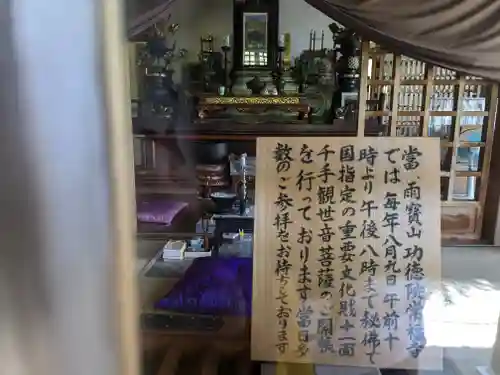 当 雨寶山 功徳院常福寺
では 毎年八月九日 午前十
時より 午後八時まで 秘佛で
国指定の重要文化財 十一面
千手観世音菩薩の ご開帳
を行っております 当日多
数のご参拝をお待ちしております